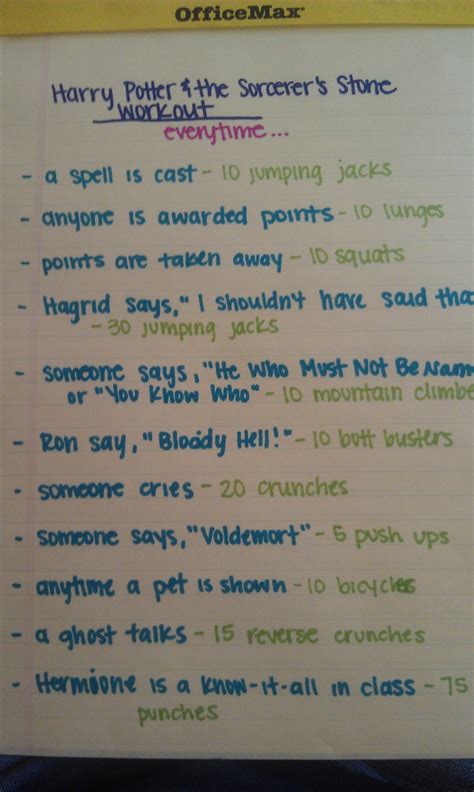 OfficeMax
Harry Potter & the Sorcerer's Stone
Workout
everytime...
- a spell is cast - 10 jumping jacks
- anyone is awarded points - 10 lunges
- points are taken away - 10 squats
- Hagrid says, "I shouldn't have said tha
- 30 jumping jacks
- someone says, "He Who Must Not Be Nam
or "You Know Who" - 10 mountain climbe
- Ron say, "Bloody Hell!" - 10 butt busters
- someone cries - 20 crunches
- someone says, "Voldemort" - 5 push ups
- anytime a pet is shown - 10 bicycles
- a ghost talks - 15 reverse crunches
- Hermione is a know-it-all in class - 75
punches